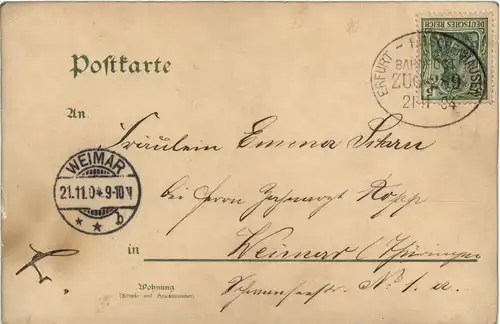 DEUTSCHES REICH
ERFURT
BAHNPOST
ZUG 249
21 11 04
Postkarte
An
Fräulein Emma
WEIMAR
21.11.04 9-10 V
* * b
bei Herrn Zahnarzt Kopp
in Weimar (Thüringen
Wohnung
(Straße und Hausnummer)
Schwanseestr. No 1. a.